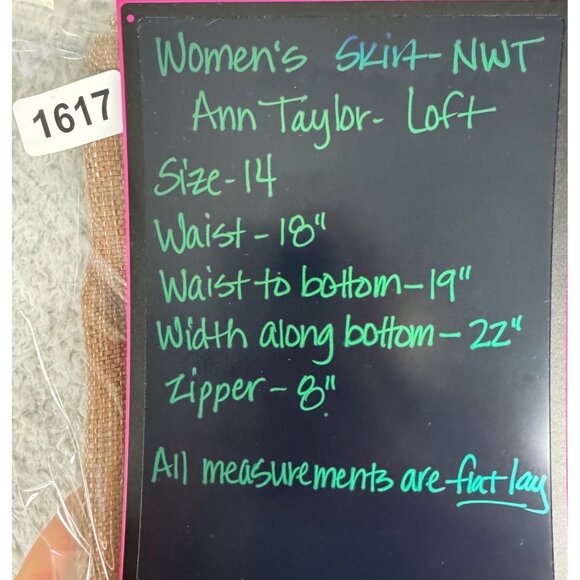 1617
Women's Skirt - NWT
Ann Taylor - Loft
Size - 14
Waist - 18"
Waist to bottom - 19"
Width along bottom - 22"
Zipper - 8"
All measurements are flat lay